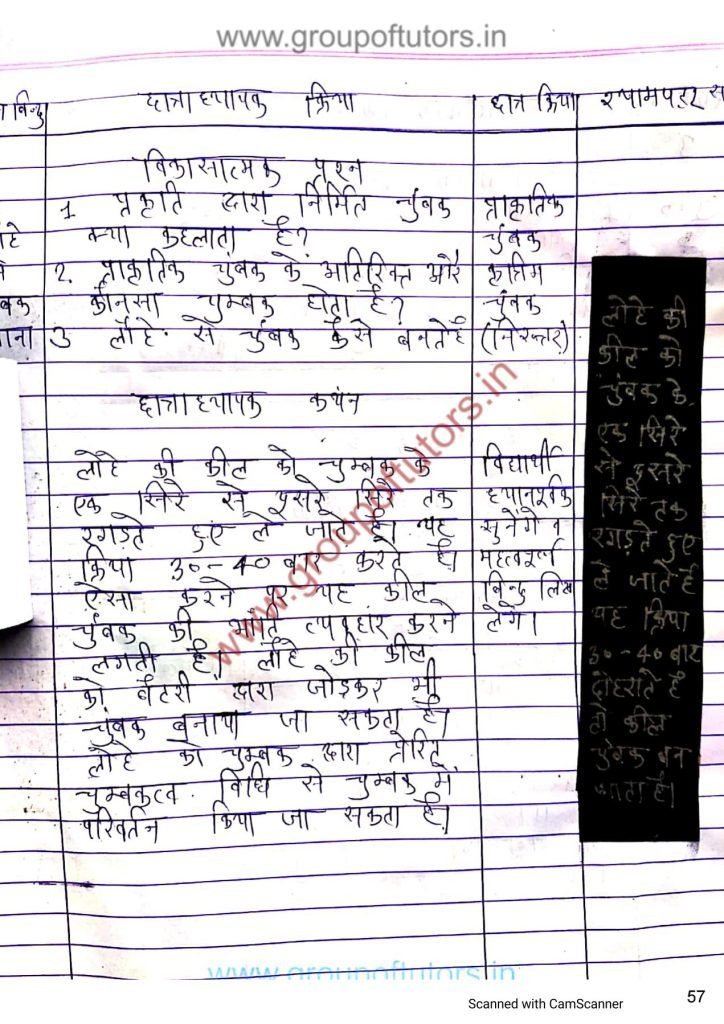 www.groupoftutors.in
बिन्दु
छात्राध्यापक क्रिया
छात्र क्रिया
श्यामपट्ट
विकासात्मक प्रश्न
1 प्रकृति द्वारा निर्मित चुंबक
क्या कहलाता है?
2. प्राकृतिक चुंबक के अतिरिक्त और
कौनसा चुम्बक होता है?
3 लोहे से चुंबक कैसे बनते है
प्राकृतिक
चुंबक
कृत्रिम
चुंबक
(निरुत्तर)
छात्राध्यापक कथन
लोहे की कील को चुम्बक के
एक सिरे से दूसरे सिरे तक
रगड़ते हुए ले जाते है। यह
क्रिया 30-40 बार करते है।
ऐसा करने पर यह कील
चुंबक की भाँति व्यवहार करने
लगती है। लोहे की कील
को बैटरी द्वारा जोड़कर भी
चुंबक बनाया जा सकता है।
लोहे को चुम्बक द्वारा प्रेरित
चुम्बकत्व विधि से चुम्बक में
परिवर्तन किया जा सकता है।
विद्यार्थी
ध्यानपूर्वक
सुनेंगे व
महत्वपूर्ण
बिन्दु लिख
लेंगे।
लोहे की
कील को
चुंबक के
एक सिरे
से दूसरे
सिरे तक
रगड़ते हुए
ले जाते है
यह क्रिया
30-40 बार
दोहराते है
तो कील
चुंबक बन
जाता है।
www.groupoftutors.in
www.groupoftutors.in
Scanned with CamScanner
57